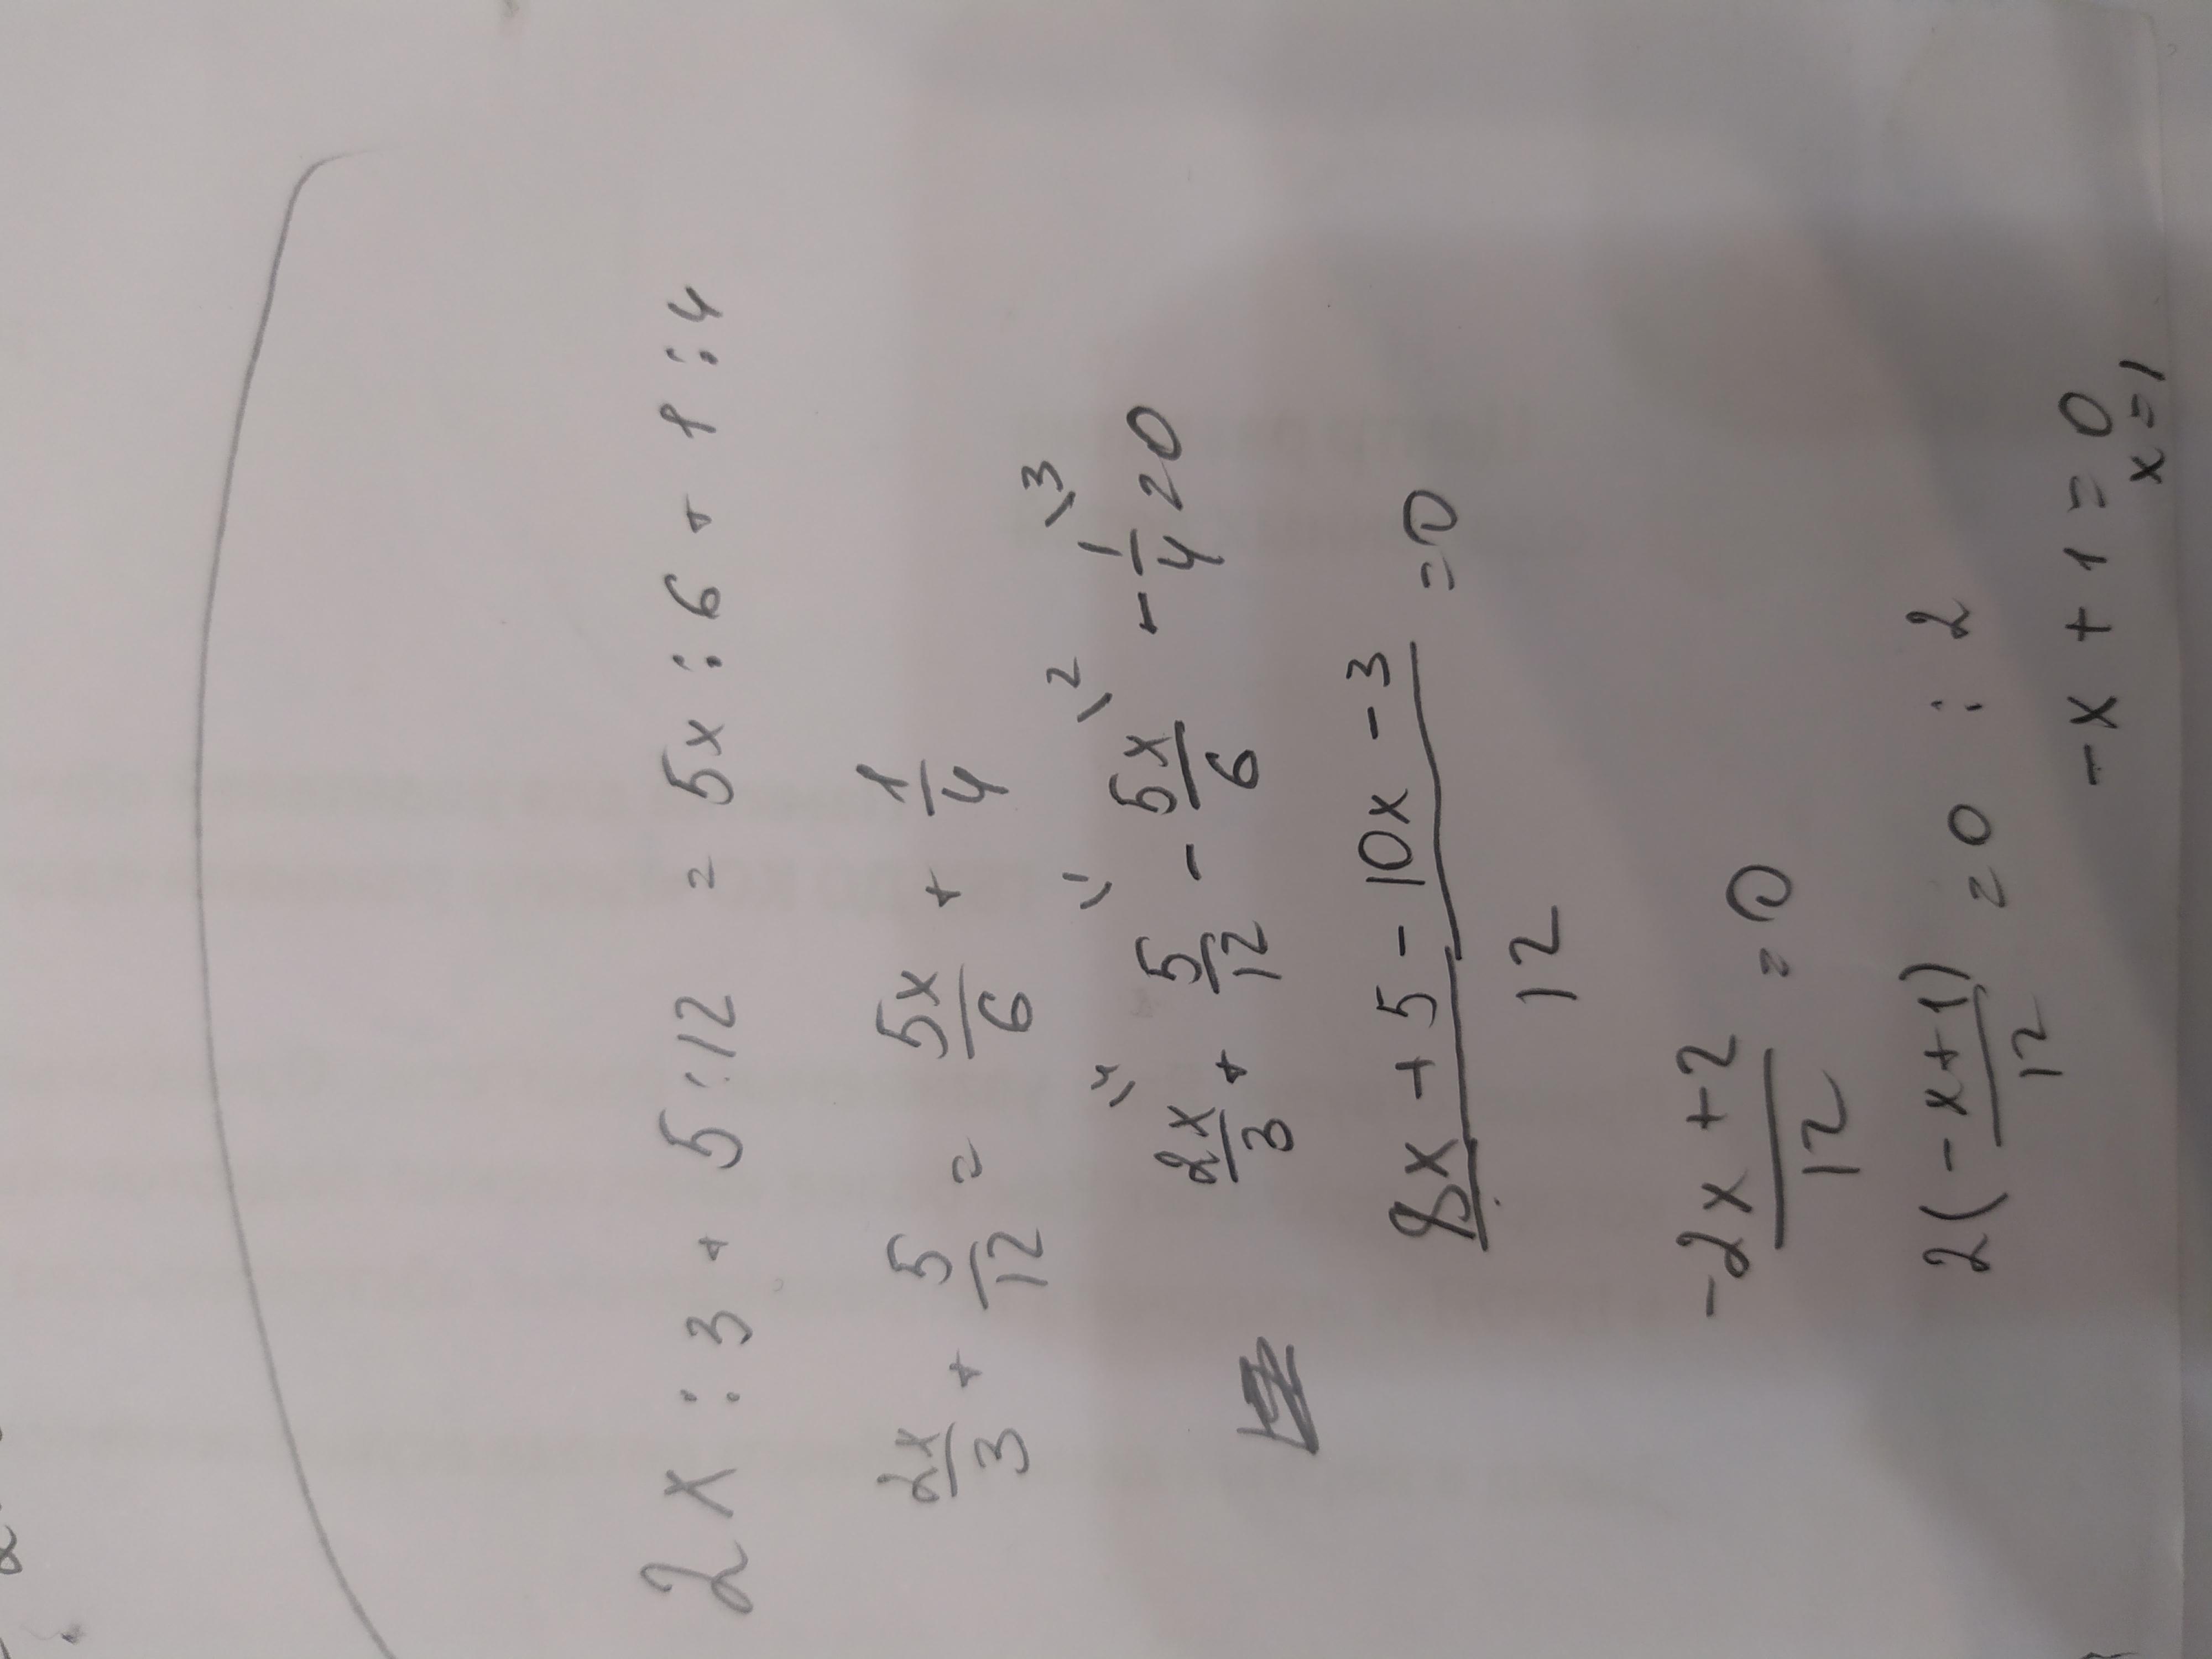 2x : 3 + 5 : 12 = 5x : 6 + 1 : 4
2x/3 + 5/12 = 5x/6 + 1/4
2x/3 \4 + 5/12 \1 - 5x/6 \2 - 1/4 \3 = 0
8x + 5 - 10x - 3 / 12 = 0
-2x + 2 / 12 = 0
2(-x+1) / 12 = 0 : 2
-x + 1 = 0
x = 1